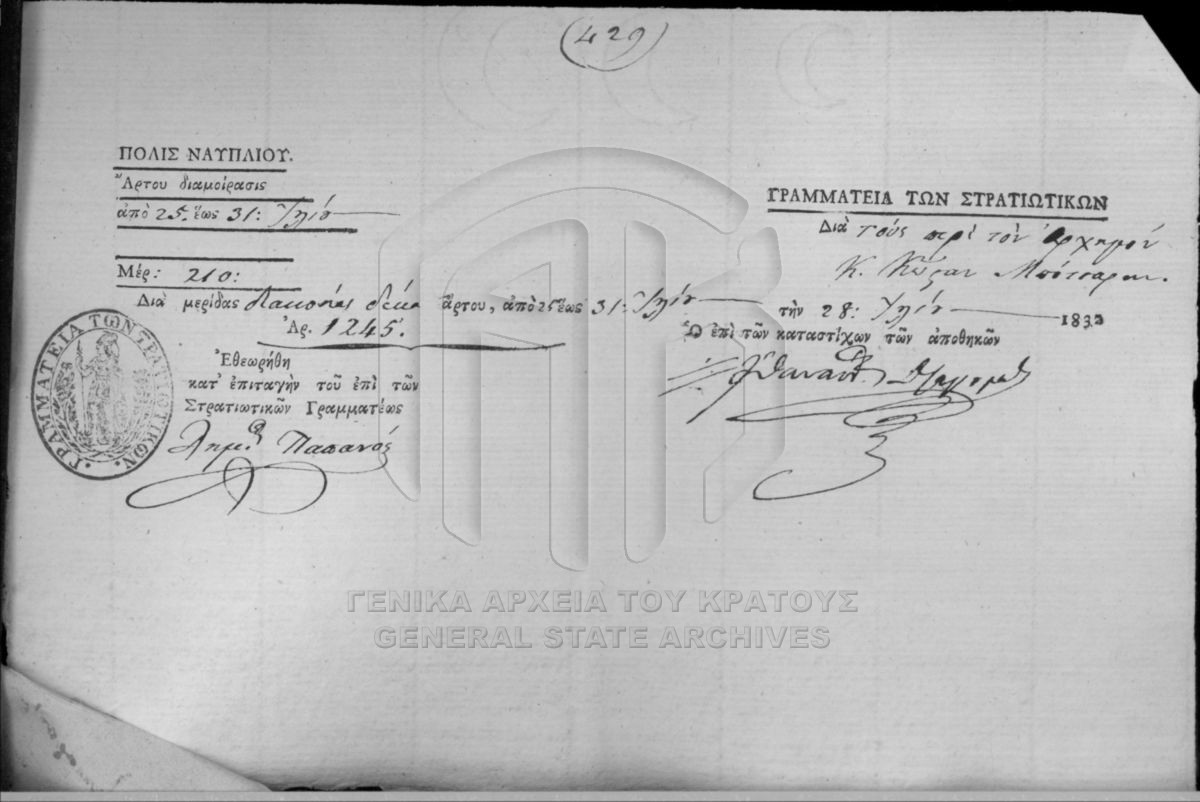 (429)
ΠΟΛΙΣ ΝΑΥΠΛΙΟΥ.
Ἄρτου διαμοίρασις
ἀπὸ 25. ἕως 31: Ἰλίου
Μέρ: 210:
Διὰ μερίδας διακοσίας δέκα ἄρτου, ἀπὸ 25 ἕως 31: Ἰλίου
Ἀρ. 1245.
Ἐθεωρήθη
κατ' ἐπιταγὴν τοῦ ἐπὶ τῶν
Στρατιωτικῶν Γραμματέως
Δημ. Παπανός
ΓΡΑΜΜΑΤΕΙΑ ΤΩΝ ΣΤΡΑΤΙΩΤΙΚΩΝ.
ΓΡΑΜΜΑΤΕΙΑ ΤΩΝ ΣΤΡΑΤΙΩΤΙΚΩΝ
Διὰ τοὺς περὶ τὸν Ἀρχηγὸν
Κ. Κώσταν Μπότσαρην.
τὴν 28: Ἰλίου 1832
Ὁ ἐπὶ τῶν καταστίχων τῶν ἀποθηκῶν
ΓΕΝΙΚΑ ΑΡΧΕΙΑ ΤΟΥ ΚΡΑΤΟΥΣ
GENERAL STATE ARCHIVES